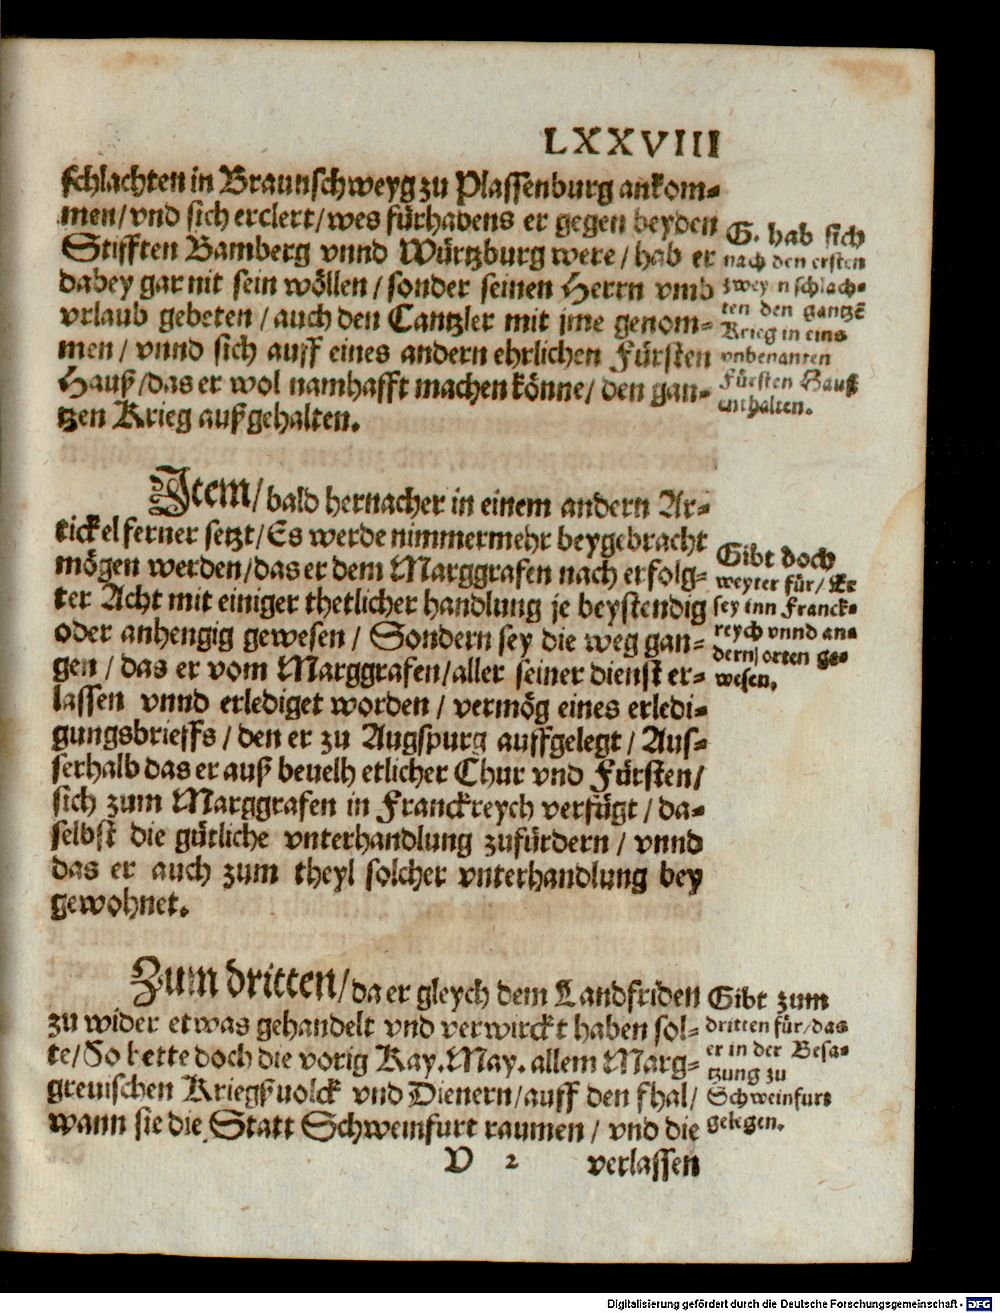 LXXVIII
schlachten in Braunschweyg zu Plassenburg ankom-
men/vnd sich erclert/wes fürhabens er gegen beyden
Stifften Bamberg vnnd Würtzburg were/hab er
dabey gar nit sein wöllen/sonder seinen Herrn vmb
vrlaub gebeten/auch den Cantzler mit jme genom-
men/vnnd sich auff eines andern ehrlichen Fürsten
Hauß/das er wol namhafft machen könne/den gan-
tzen Krieg außgehalten.
G. hab sich
nach den ersten
zweyn schlach-
ten den gantzē
Krieg in eins
vnbenanten
Fürsten Hauß
enthalten.
Item/bald hernacher in einem andern Ar-
tickel ferner setzt/Es werde nimmermehr beygebracht
mögen werden/das er dem Marggrafen nach erfolg-
ter Acht mit einiger thetlicher handlung je beystendig
oder anhengig gewesen/Sondern sey die weg gan-
gen/das er vom Marggrafen/aller seiner dienst er-
lassen vnnd erlediget worden/vermög eines erledi-
gungsbrieffs/den er zu Augspurg auffgelegt/Aus-
serhalb das er auß beuelh etlicher Chur vnd Fürsten/
sich zum Marggrafen in Franckreych verfügt/da-
selbst die gütliche vnterhandlung zufürdern/vnnd
das er auch zum theyl solcher vnterhandlung bey
gewohnet.
Gibt doch
weyter für/Er
sey inn Franck-
reych vnnd an-
dern orten ge-
wesen.
Zum dritten/da er gleych dem Landfriden
zu wider etwas gehandelt vnd verwirckt haben sol-
te/So hette doch die vorig Kay.May.allem Marg-
greuischen Kriegßuolck vnd Dienern/auff den fhal/
wann sie die Statt Schweinfurt raumen/vnd die
Gibt zum
dritten für/das
er in der Besa-
tzung zu
Schweinfurt
gelegen.
V 2 verlassen
Digitalisierung gefördert durch die Deutsche Forschungsgemeinschaft - DFG